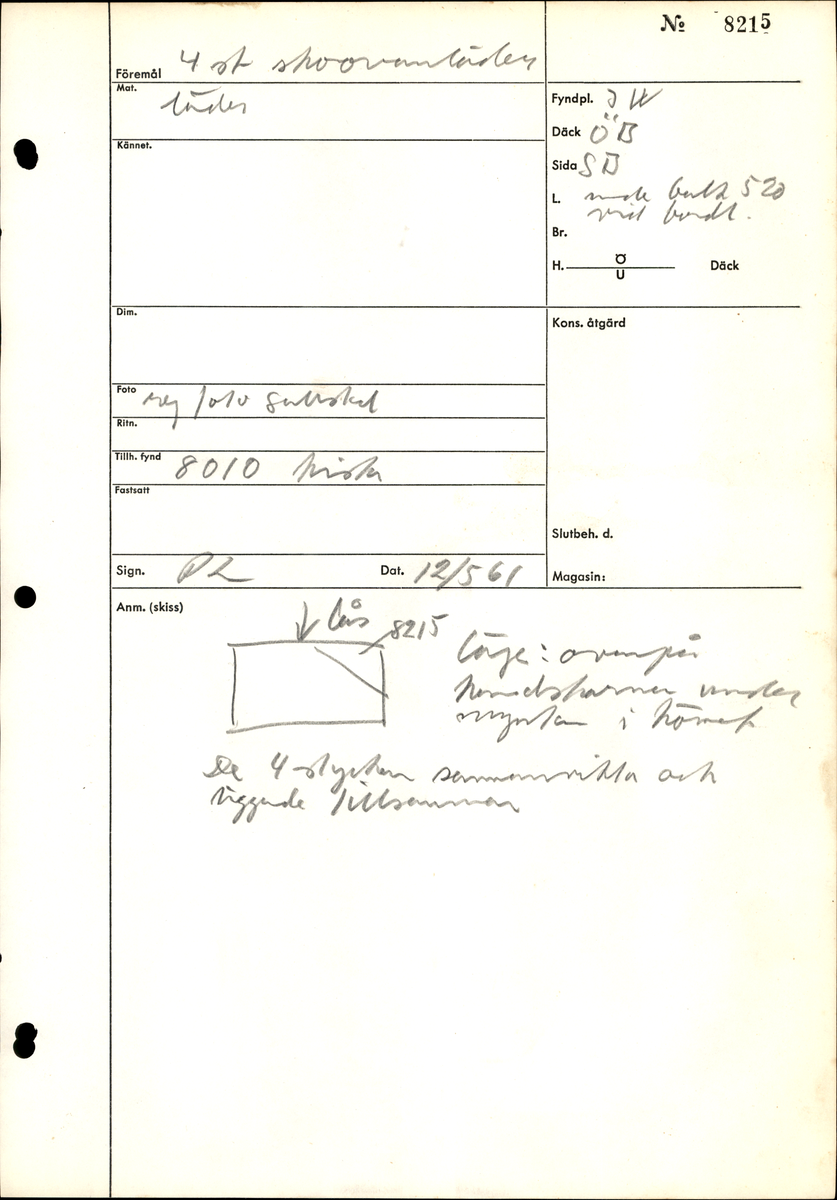 № 8215
Föremål 4 st skoovanläder
Mat. läder
Kännet.
Fyndpl. J IV
Däck ÖB
Sida SB
L. balk 520
vid bordl.
Br.
H. Ö
U
Däck
Dim.
Kons. åtgärd
Foto rej foto
Ritn.
Tillh. fynd 8010 kista
Fastsatt
Slutbeh. d.
Sign. PL
Dat. 12/5 61
Magasin:
Anm. (skiss)
lås
8215
läge: ovanpå
handskarna under
mynten i hörnet
De 4 stycken sammanvikta och
liggande tillsammans